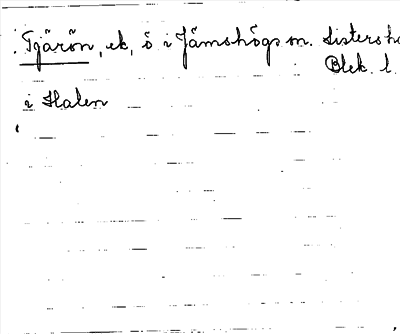 Tjärön, ek, ö i Jämshögs sn. Listers h
Blek. l.
i Halen